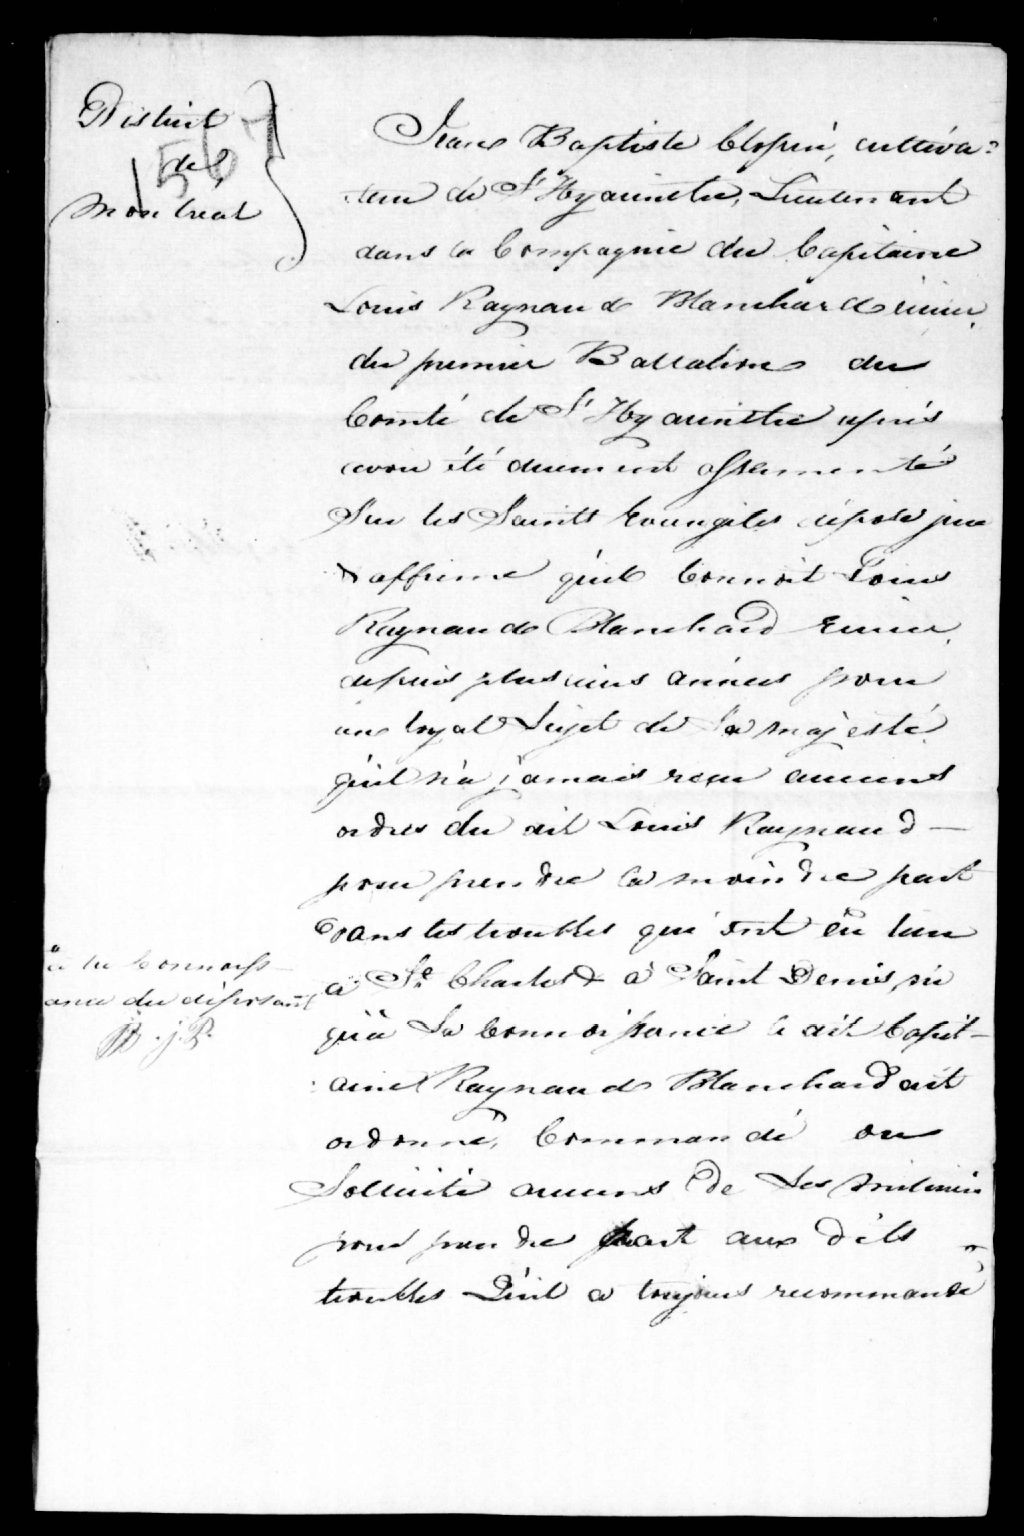 District
de
Montreal
1567
Jean Baptiste Clopin, cultiva=
teur de St Hyacinthe, Lieutenant
dans la Compagnie du Capitaine
Louis Raynaud Blanchard Ecuier,
du premier Batalion du
Comté de St Hyacinthe après
avoir été duement assermenté
Sur les Saints Evangiles dépose jure
& affirme qu'il Connoit Louis
Raynaud Blanchard Ecuier,
depuis plusieurs années pour
un loyal Sujet de Sa Majesté,
qu'il n'a jamais reçu aucuns
ordres du dit Louis Raynaud —
pour prendre la moindre part
dans les troubles qui ont eu lieu
a St Charles & à Saint Denis, ni
qu'à Sa Connoissance le dit Capit-
aine Raynaud Blanchard ait
ordonné, Commandé ou
Sollicité aucuns de Ses Miliciens
pour prendre part aux dits
troubles Qu'il a toujours recommandé
à la Connoiss-
ance du déposant